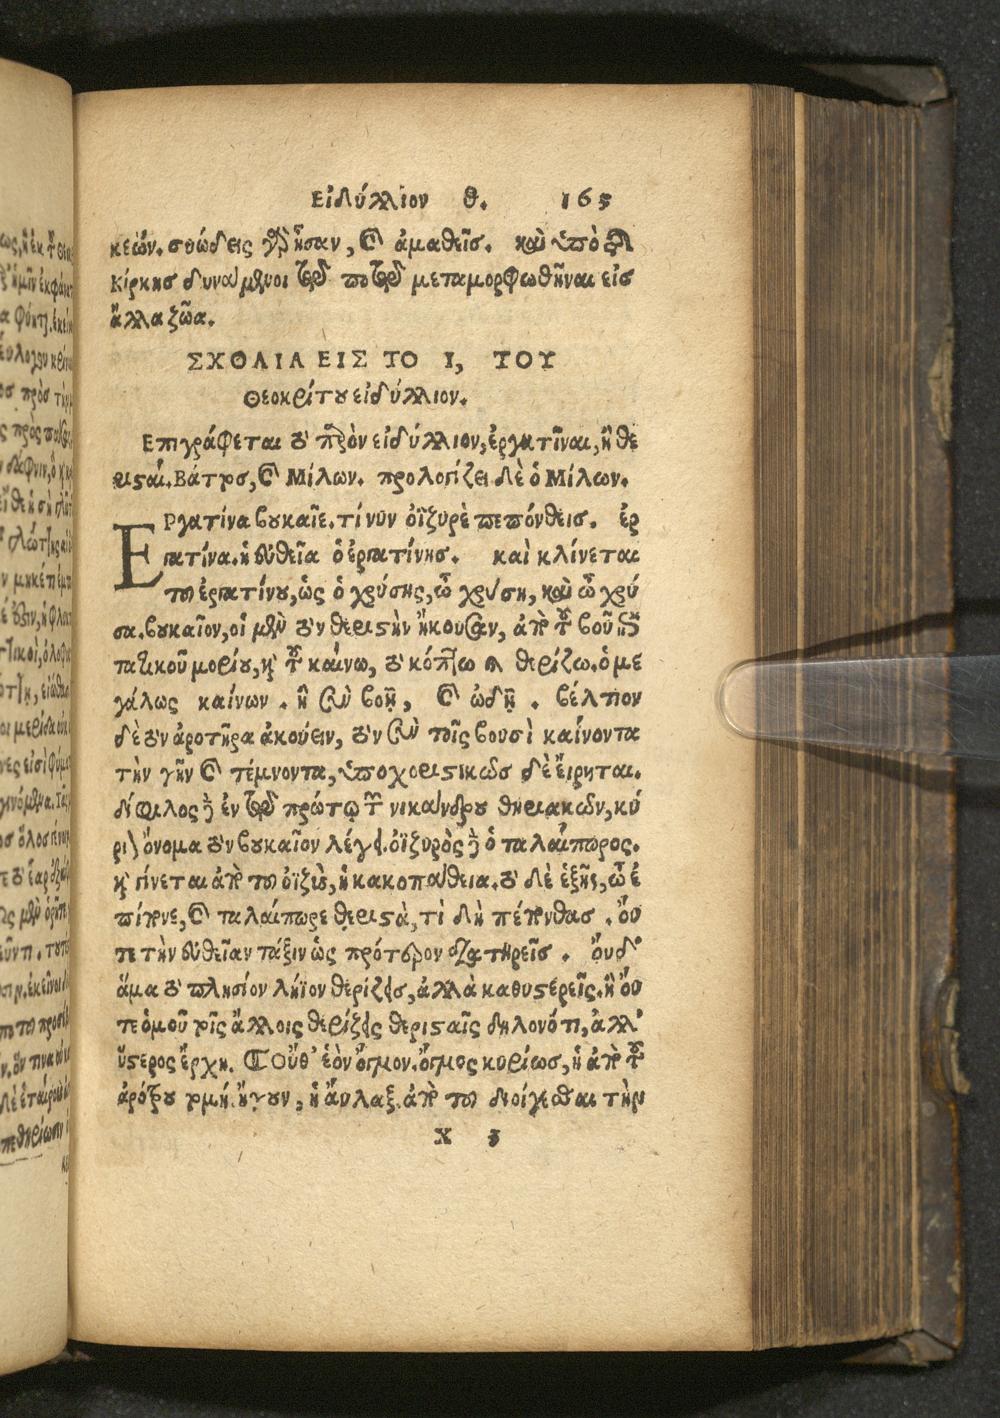 Εἰδύλλιον θ. 165
κεών. συώδεις γὰρ ἦσαν, καὶ ἀμαθεῖς. καὶ ὑπὸ τῆς
Κίρκης δυνάμενοι τῷ ποτῷ μεταμορφωθῆναι εἰς
ἄλλα ζῶα.
ΣΧΟΛΙΑ ΕΙΣ ΤΟ Ι, ΤΟΥ
Θεοκρίτου εἰδύλλιον.
Επιγράφεται τὸ παρὸν εἰδύλλιον, ἐργατῖναι, ἢ θε
ρισταί. Βάττος, καὶ Μίλων. προλογίζει δὲ ὁ Μίλων.
ΕΡγατίνα βουκαῖε. τί νῦν ὀϊζυρὲ πεπόνθεις. ἐρ
γατίνα. ἡ εὐθεῖα ὁ ἐργατίνης. καὶ κλίνεται
τοῦ ἐργατίνου, ὡς ὁ χρύσης, ὦ χρύση, καὶ ὦ χρύ
σα. βουκαῖον, οἱ μὲν οὖν θεριστὴν ἤκουσαν, ἀπὸ τοῦ βοῦ ἐπι
τατικοῦ μορίου, καὶ τοῦ καίνω, τὸ κόπτω καὶ θερίζω. ὁ με
γάλως καίνων. ἢ σὺν βοῇ, καὶ ὠδῇ. βέλτιον
δὲ τὸν ἀροτῆρα ἀκούειν, τὸν σὺν τοῖς βουσὶ καίνοντα
τὴν γῆν καὶ τέμνοντα, ὑποχοριστικῶς δὲ εἴρηται.
δίφιλος δὲ ἐν τῷ πρώτῳ τῶν νικάνδρου θηριακῶν, κύ
ριον ὄνομα τὸν βουκαῖον λέγει. ὀϊζυρὸς δὲ ὁ ταλαίπωρος.
καὶ γίνεται ἀπὸ τοῦ ὀϊζὺς, ἡ κακοπάθεια. τὸ δὲ ἑξῆς, ὦ ἐ
πίπονε, καὶ ταλαίπωρε θεριστὰ, τί δὴ πέπονθας. οὔ
τε τὴν εὐθεῖαν τάξιν ὡς πρότερον διατηρεῖς. οὔτε δ'
ἅμα τὸ πλησίον λήϊον θερίζεις, ἀλλὰ καθυστέρεῖς. ἢ οὔ
τε ὁμοῦ τοῖς ἄλλοις θερίζεις θερισταῖς δηλονότι, ἀλλ'
ὕστερος ἔρχῃ. Οὔθ' ἑὸν ὄγμον. ὄγμος κυρίως, ἡ ἀπὸ τοῦ
ἀρότρου τομή. ἤγουν, ἡ αὖλαξ. ἀπὸ τοῦ διοίγεσθαι τὴν
X 5